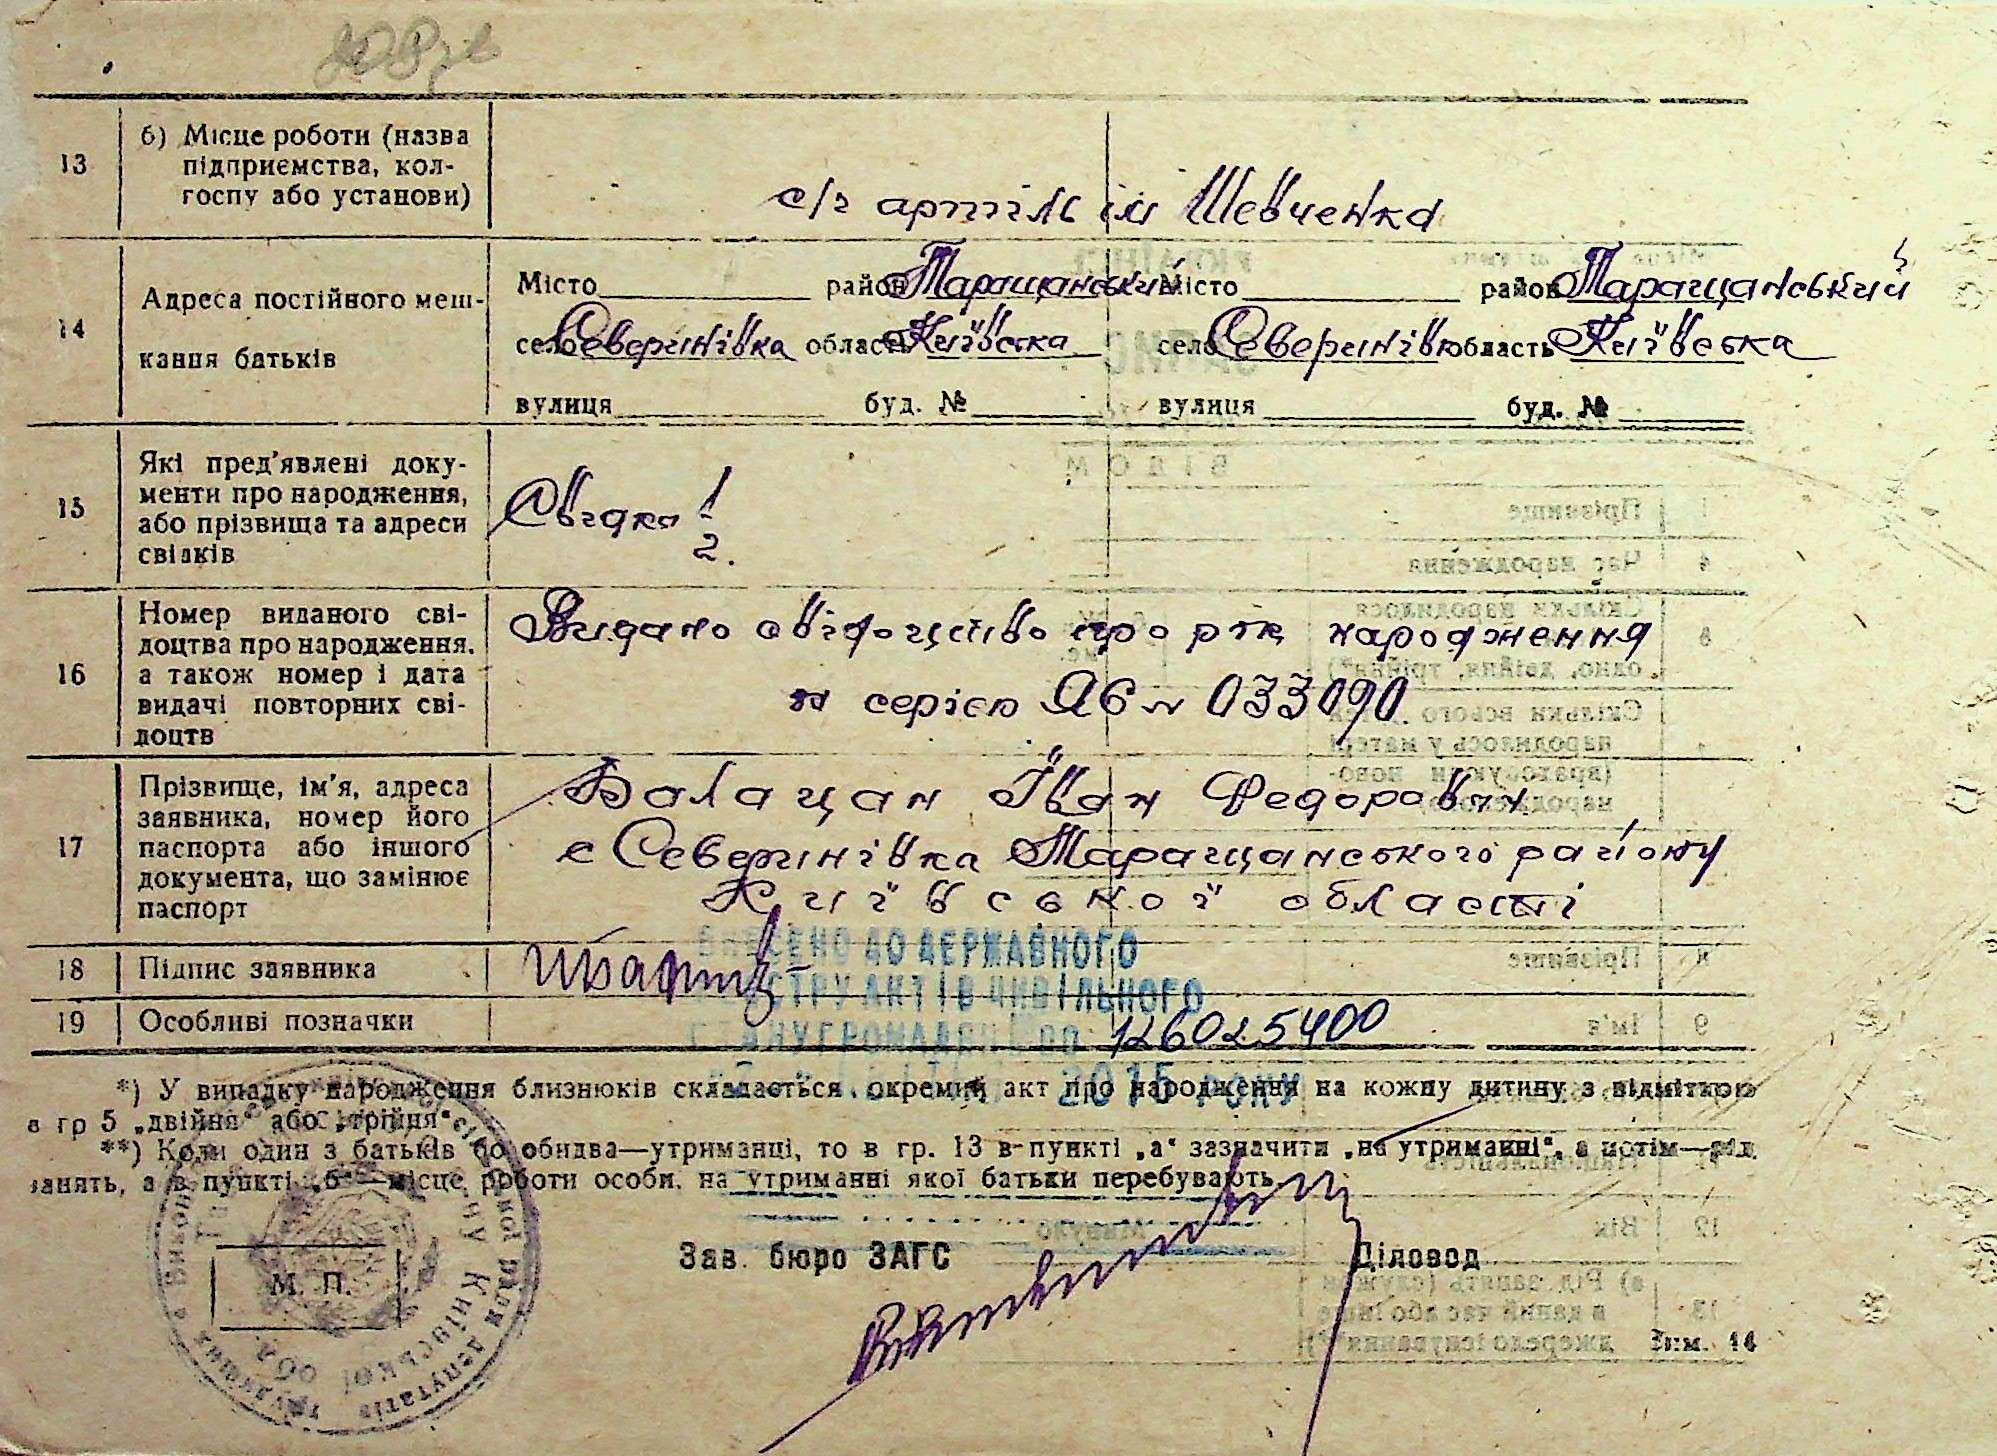 13 б) Місце роботи (назва
підприємства, кол-
госпу або установи)
с/г артіль ім Шевченка
14 Адреса постійного меш-
кання батьків
Місто район Таращанський Місто район Таращанський
село Северинівка область Київська село Северинівка область Київська
вулиця буд. № вулиця буд. №
15 Які пред'явлені доку-
менти про народження,
або прізвища та адреси
свідків
1
2.
16 Номер виданого сві-
доцтва про народження,
а також номер і дата
видачі повторних сві-
доцтв
Видано свідоцтво про народження
за серією ЯБ № 033090.
17 Прізвище, ім'я, адреса
заявника, номер його
паспорта або іншого
документа, що замінює
паспорт
Балацан Іван Федорович
с Северинівка Таращанського району
Київської області
18 Підпис заявника
19 Особливі позначки
ВНЕСЕНО ДО ДЕРЖАВНОГО
РЕЄСТРУ АКТІВ ЦИВІЛЬНОГО
СТАНУ ГРОМАДЯН
126025400
2015 РОКУ
*) У випадку народження близнюків складається окремий акт про народження на кожну дитину з відміткою
в гр 5 „двійня“ або „трійня“
**) Коли один з батьків бо обидва—утриманці, то в гр. 13 в пункті „а“ зазначити „на утриманні“, а потім—рід
занять, а в пункті „б“—місце роботи особи, на утриманні якої батьки перебувають
Зав. бюро ЗАГС Діловод
М. П.
Зам. 44